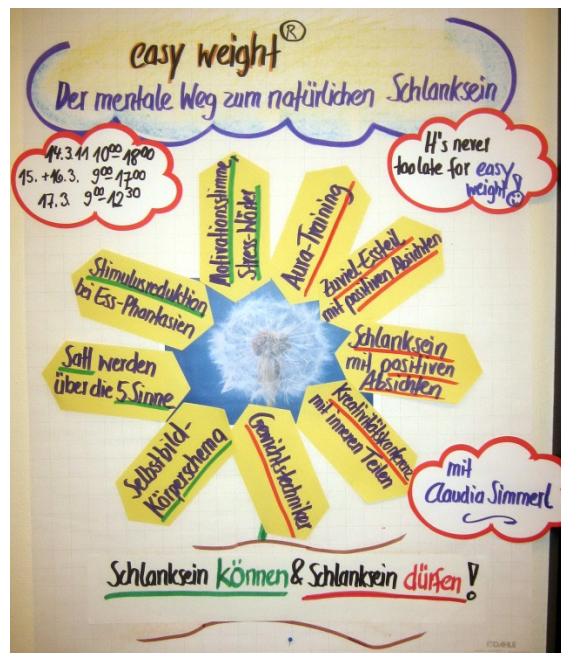 easy weight ®
Der mentale Weg zum natürlichen Schlanksein
14.3.11 10⁰⁰-18⁰⁰
15.+16.3. 9⁰⁰-17⁰⁰
17.3. 9⁰⁰-12³⁰
It's never
too late for easy
weight!
Motivationsstimme,
Stress-Wörter
Aura-Training
Zuviel-Essteil
mit positiven Absichten
Schlanksein
mit positiven
Absichten
Kreativitätskonferenz
mit inneren Teilen
Gewichtstechniker
Selbstbild-
Körperschema
Satt werden
über die 5 Sinne
Stimulusreduktion
bei Ess-Phantasien
mit
Claudia Simmerl
Schlanksein können & Schlanksein dürfen!
©DAHLE